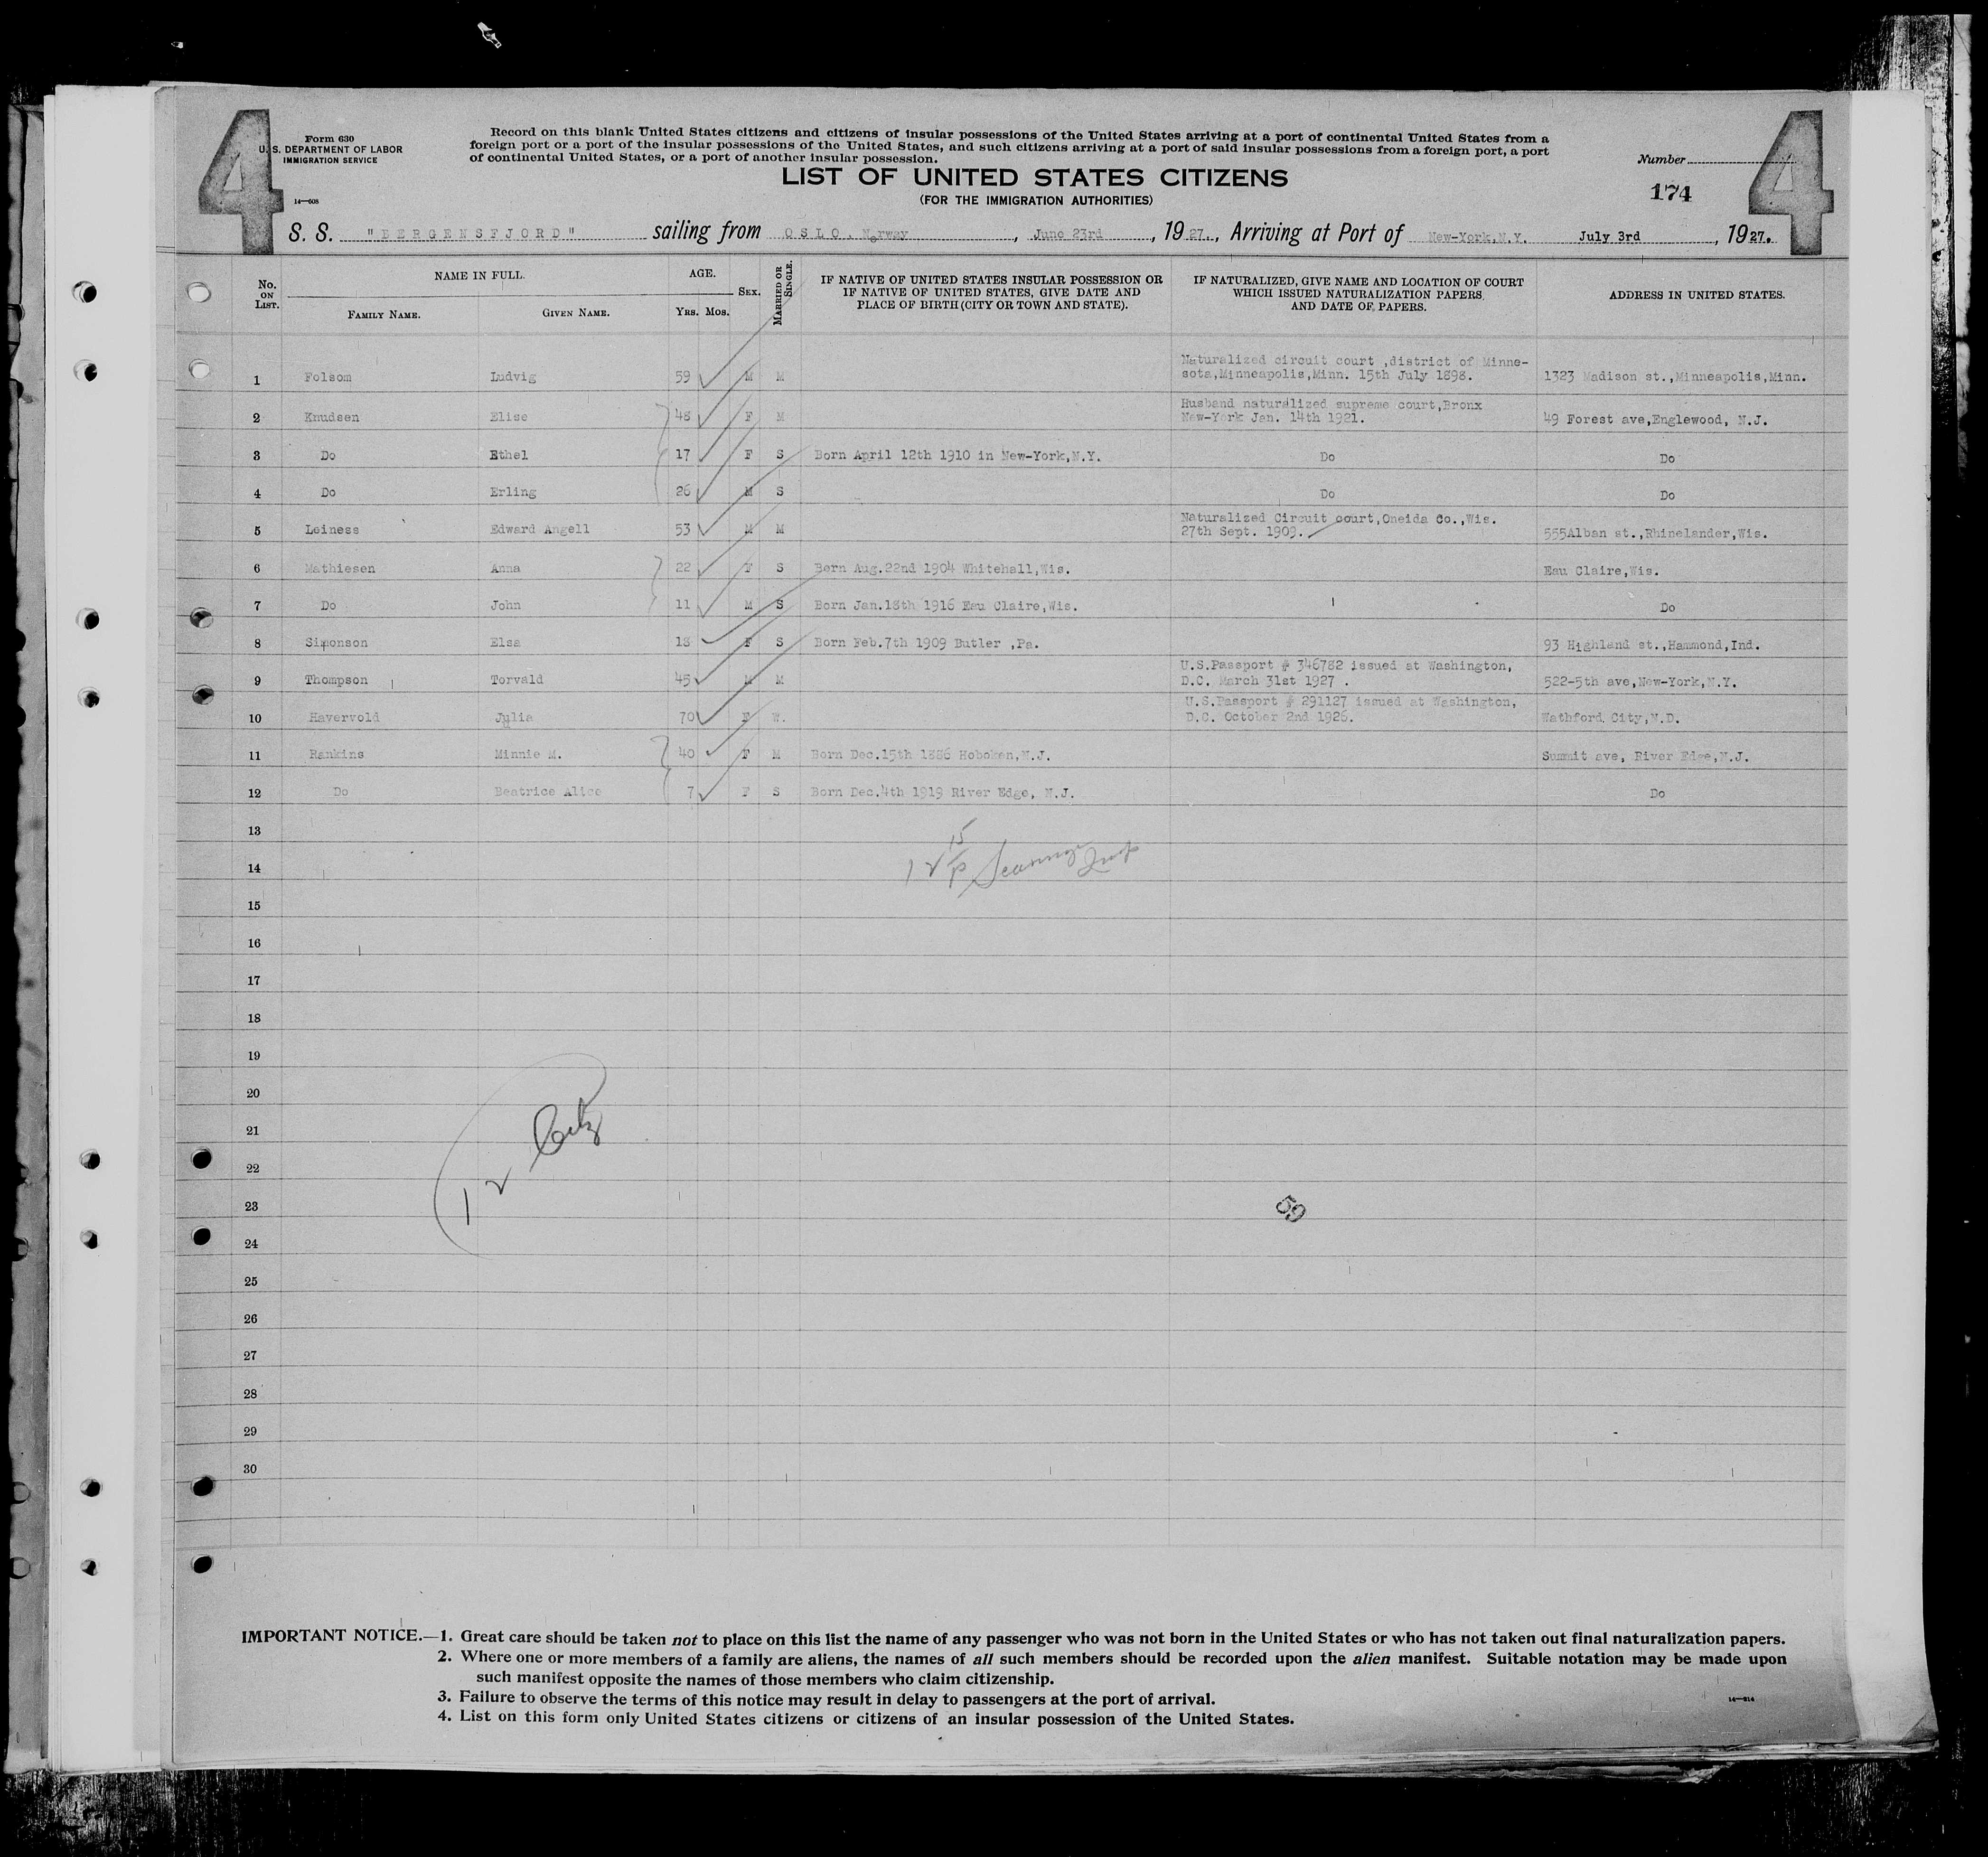 4
4
Form 630
U. S. DEPARTMENT OF LABOR
IMMIGRATION SERVICE
14—608
Record on this blank United States citizens and citizens of insular possessions of the United States arriving at a port of continental United States from a
foreign port or a port of the insular possessions of the United States, and such citizens arriving at a port of said insular possessions from a foreign port, a port
of continental United States, or a port of another insular possession.
Number
LIST OF UNITED STATES CITIZENS
174
(FOR THE IMMIGRATION AUTHORITIES)
S. S. "BERGENSFJORD" sailing from OSLO. Norway, June 23rd, 1927., Arriving at Port of New-York,N.Y. July 3rd, 1927.
No. ON LIST. NAME IN FULL. AGE. SEX. MARRIED OR SINGLE. IF NATIVE OF UNITED STATES INSULAR POSSESSION OR IF NATIVE OF UNITED STATES, GIVE DATE AND PLACE OF BIRTH (CITY OR TOWN AND STATE). IF NATURALIZED, GIVE NAME AND LOCATION OF COURT WHICH ISSUED NATURALIZATION PAPERS, AND DATE OF PAPERS. ADDRESS IN UNITED STATES.
FAMILY NAME. GIVEN NAME. YRS. MOS.
1 Folsom Ludvig 59 M M Naturalized circuit court ,district of Minne-
sota,Minneapolis,Minn. 15th July 1898. 1323 Madison st.,Minneapolis,Minn.
2 Knudsen Elise 48 F M Husband naturalized supreme court,Bronx
New-York Jan. 14th 1921. 49 Forest ave,Englewood, N.J.
3 Do Ethel 17 F S Born April 12th 1910 in New-York,N.Y. Do Do
4 Do Erling 26 M S Do Do
5 Leiness Edward Angell 53 M M Naturalized Circuit court,Oneida Co.,Wis.
27th Sept. 1909. 555Alban st.,Rhinelander,Wis.
6 Mathiesen Anna 22 F S Born Aug.22nd 1904 Whitehall,Wis. Eau Claire,Wis.
7 Do John 11 M S Born Jan.18th 1916 Eau Claire,Wis. Do
8 Simonson Elsa 18 F S Born Feb.7th 1909 Butler ,Pa. 93 Highland st.,Hammond,Ind.
9 Thompson Torvald 45 M M U.S.Passport # 346782 issued at Washington,
D.C. March 31st 1927 . 522-5th ave,New-York,N.Y.
10 Havervold Julia 70 F W. U.S.Passport # 291127 issued at Washington,
D.C. October 2nd 1926. Wathford City,N.D.
11 Rankins Minnie M. 40 F M Born Dec.15th 1886 Hoboken,N.J. Summit ave, River Edge,N.J.
12 Do Beatrice Alice 7 F S Born Dec.4th 1919 River Edge, N.J. Do
13
14
15
16
17
18
19
20
21
22
23
24
25
26
27
28
29
30
12
59
IMPORTANT NOTICE.—1. Great care should be taken not to place on this list the name of any passenger who was not born in the United States or who has not taken out final naturalization papers.
2. Where one or more members of a family are aliens, the names of all such members should be recorded upon the alien manifest. Suitable notation may be made upon
such manifest opposite the names of those members who claim citizenship.
3. Failure to observe the terms of this notice may result in delay to passengers at the port of arrival.
4. List on this form only United States citizens or citizens of an insular possession of the United States.
14—214